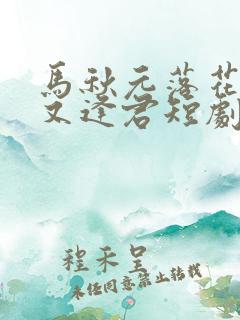 馬秋元落花
又逢君短劇
程禾呈
未经同意禁止转载